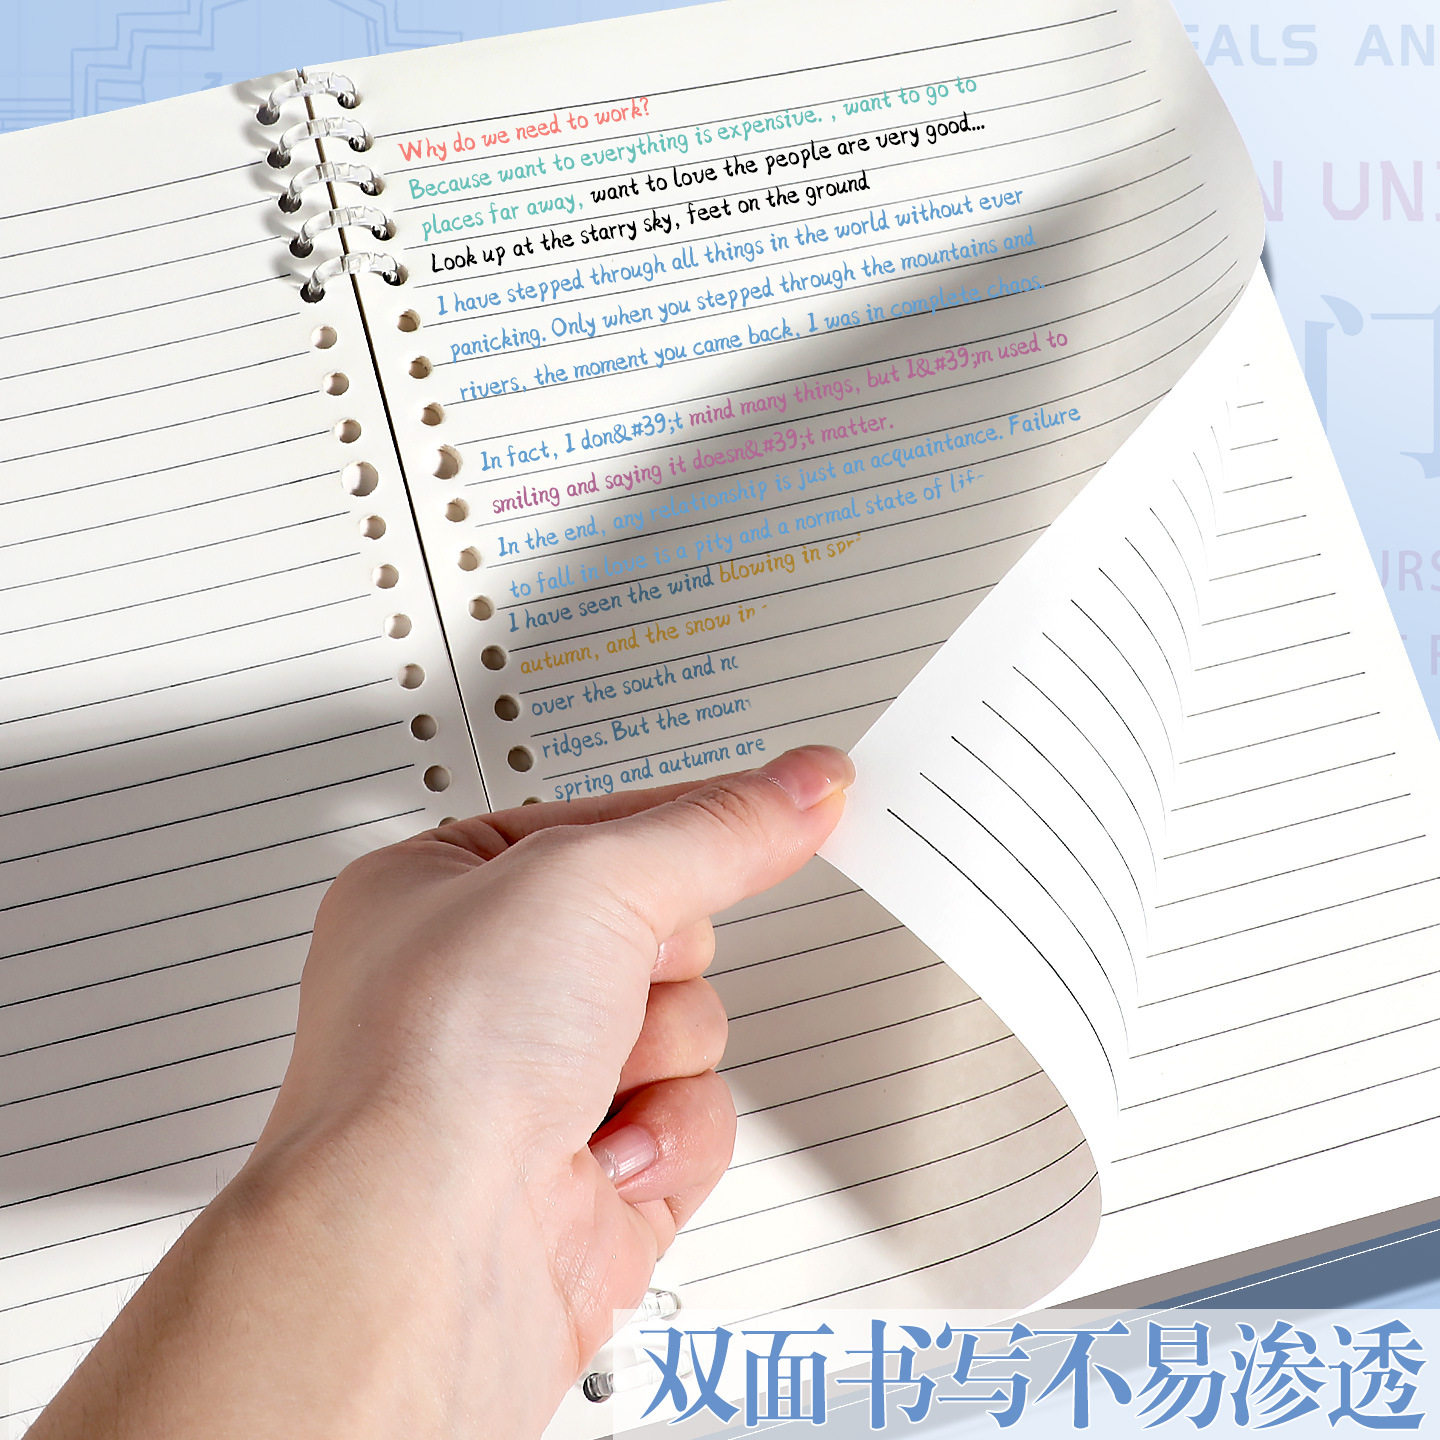 EALS AN
N UNI
Why do we need to work?
Because want to everything is expensive. , want to go to
places far away, want to love the people are very good...
Look up at the starry sky, feet on the ground
I have stepped through all things in the world without ever
panicking. Only when you stepped through the mountains and
rivers, the moment you came back, I was in complete chaos.
In fact, I don&#39;t mind many things, but I&#39;m used to
smiling and saying it doesn&#39;t matter.
In the end, any relationship is just an acquaintance. Failure
to fall in love is a pity and a normal state of
I have seen the wind blowing in
autumn, and the snow in
over the south and
ridges. But the
spring and autumn are
双面书写不易渗透